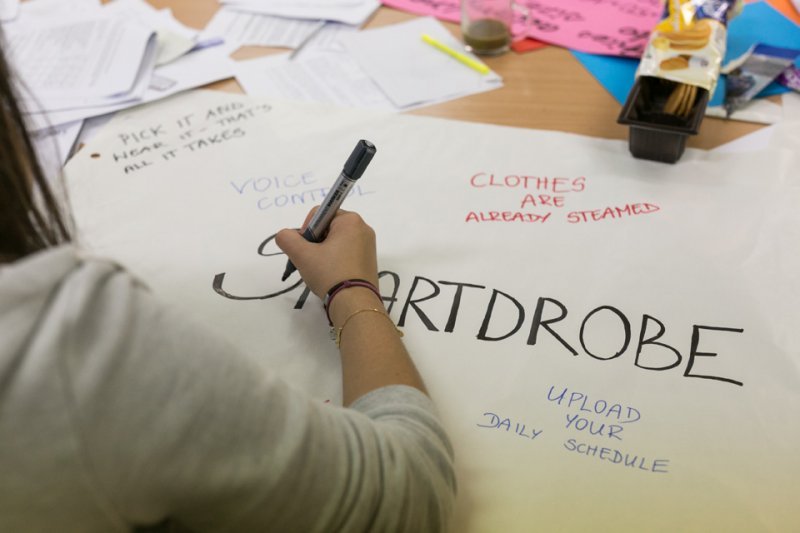 PICK IT AND
WEAR IT - THAT'S
ALL IT TAKES
VOICE
CONTROL
CLOTHES
ARE
ALREADY STEAMED
SMARTDROBE
UPLOAD
YOUR
DAILY SCHEDULE